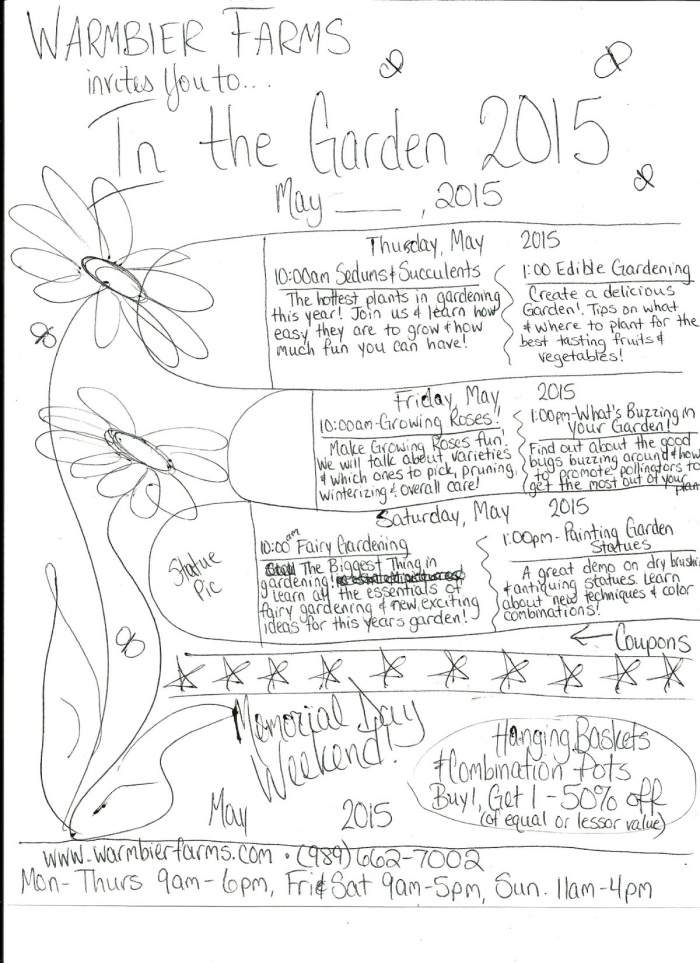 WARMBIER FARMS
invites You to...
In the Garden 2015
May ____, 2015
Thursday, May 2015
10:00am Seduns & Succulents
The hottest plants in gardening
this year! Join us & learn how
easy they are to grow & how
much fun you can have!
1:00 Edible Gardening
Create a delicious
Garden! Tips on what
& where to plant for the
best tasting fruits &
vegetables!
Friday, May 2015
10:00am-Growing Roses!
Make Growing Roses fun!
We will talk about varieties
& which ones to pick, pruning,
winterizing & overall care!
1:00pm-What's Buzzing in
your Garden!
Find out about the good
bugs buzzing around & how
to promote pollinators to
get the most out of your
plan
Saturday, May 2015
10:00am Fairy Gardening
The Biggest Thing in
gardening!
Learn all the essentials of
fairy gardening & new, exciting
ideas for this years garden!
1:00pm- Painting Garden
Statues
A great demo on dry brushi
& antiquing statues. Learn
about new techniques & color
combinations!
Statue
Pic
← Coupons
Memorial Day
Weekend!
May 2015
Hanging Baskets
& Combination Pots
Buy 1, Get 1 - 50% off
(of equal or lessor value)
www.warmbierfarms.com • (989) 662-7002
Mon-Thurs 9am-6pm, Fri & Sat 9am-5pm, Sun. 11am-4pm